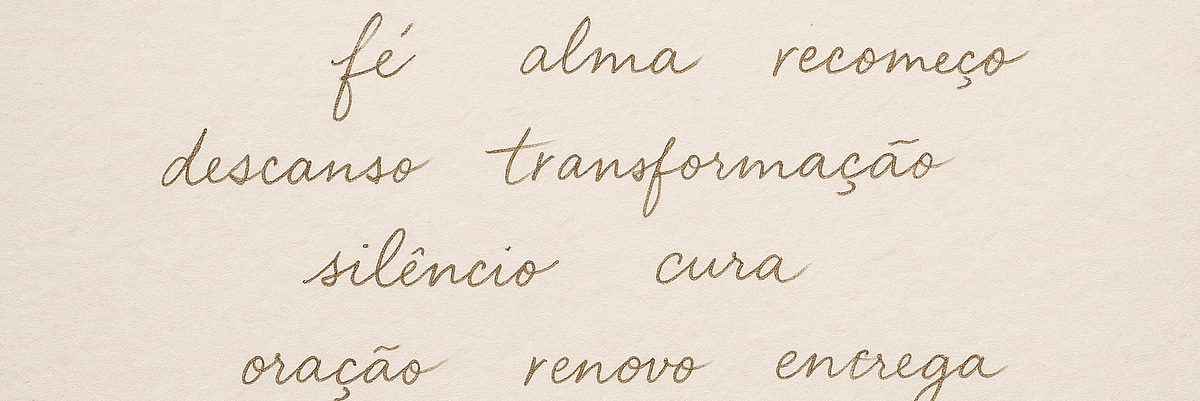 fé alma recomeço
descanso transformação
silêncio cura
oração renovo entrega